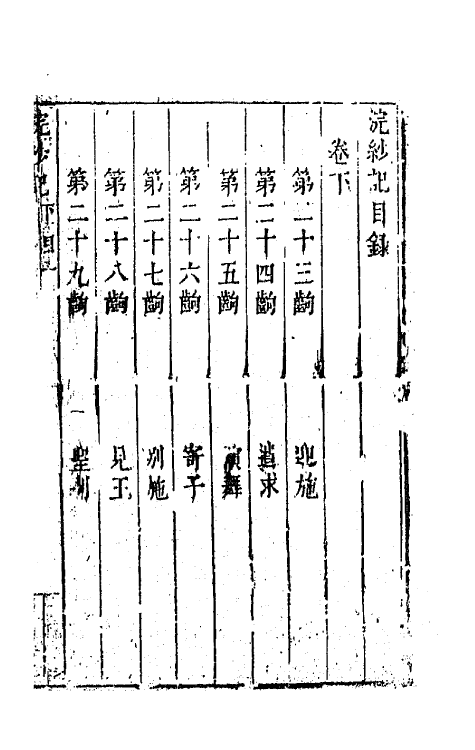 浣紗記目錄
卷下
第二十三齣 迎施
第二十四齣 追求
第二十五齣 演舞
第二十六齣 寄子
第二十七齣 別施
第二十八齣 見王
第二十九齣 聖別
浣紗記下目